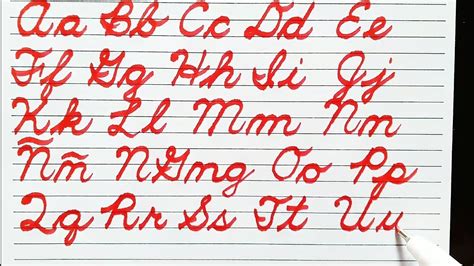 Aa Bb Cc Dd Ee
Ff Gg Hh Ii Jj
Kk Ll Mm Nn
Ññ NGng Oo Pp
Qq Rr Ss Tt Uu